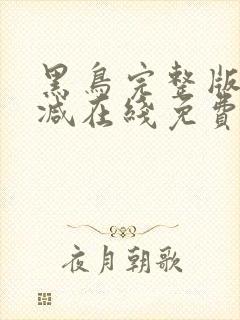 黑鳥完整版
減在綫免費
夜月朝歌